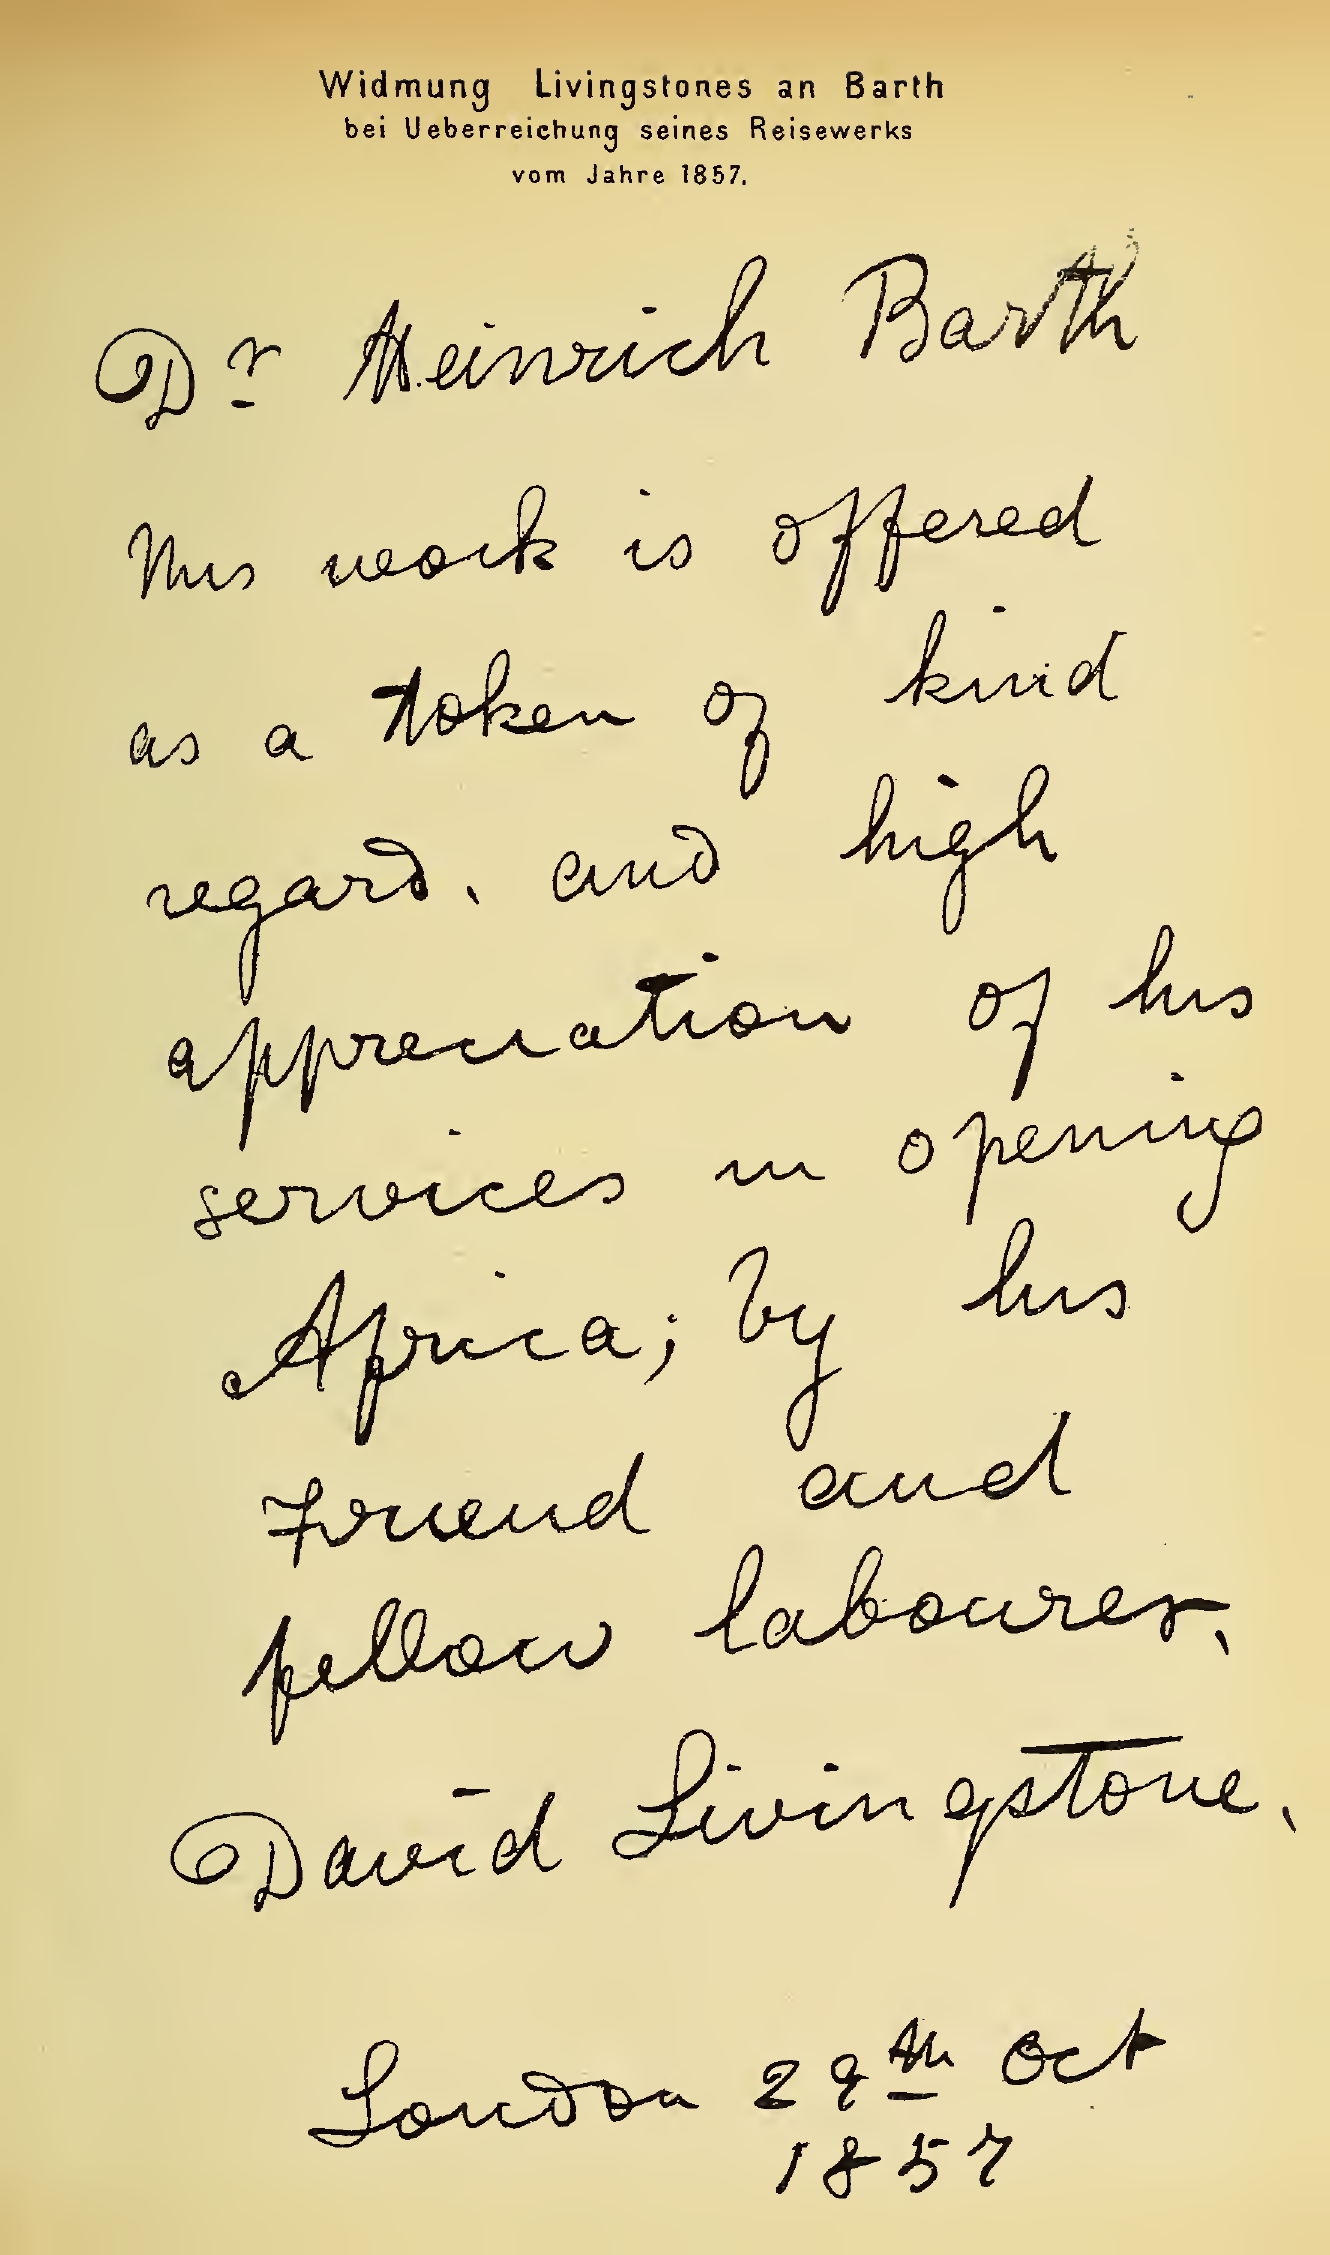 Widmung Livingstones an Barth
bei Ueberreichung seines Reisewerks
vom Jahre 1857.
Dr Heinrich Barth
This work is offered
as a token of kind
regard, and high
appreciation of his
services in opening
Africa; by his
Friend and
fellow labourer,
David Livingstone.
London 29th Oct
1857